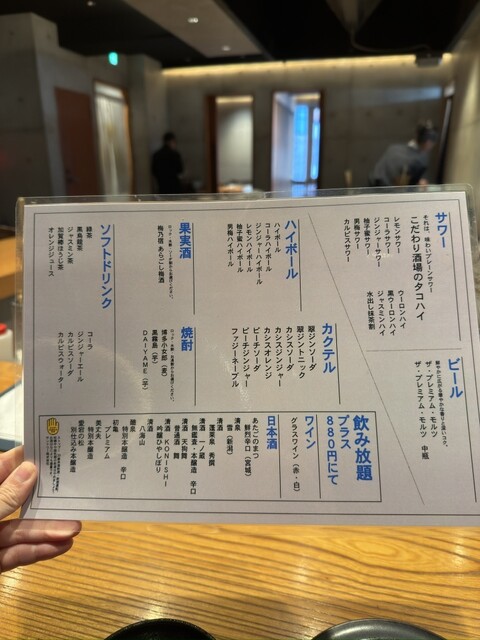 サワー
それは、味わいプレーンサワー
こだわり酒場のタコハイ
レモンサワー
コーラサワー
ジンジャーサワー
柚子蜜サワー
男梅サワー
カルピスサワー
ウーロンハイ
黒ウーロンハイ
ジャスミンハイ
水出し抹茶割
ビール
華やかに広がる華やかな香りと深いコク。
ザ・プレミアム・モルツ
ザ・プレミアム・モルツ 中瓶
ハイボール
ハイボール
コーラハイボール
ジンジャーハイボール
レモンハイボール
柚子蜜ハイボール
男梅ハイボール
カクテル
翠ジンソーダ
翠ジントニック
カシスソーダ
カシスジンジャー
カシスオレンジ
ピーチソーダ
ピーチジンジャー
ファジーネーブル
果実酒
梅乃宿 あらごし梅酒
焼酎
博多小女郎(麦)
黒霧島(芋)
DAIYAME(芋)
ソフトドリンク
緑茶
黒烏龍茶
ジャスミン茶
加賀棒ほうじ茶
オレンジジュース
コーラ
ジンジャーエール
カルピスソーダ
カルピスウォーター
飲み放題
プラス
880円にて
ワイン
グラスワイン(赤・白)
日本酒
あたごのまつ
鮮烈辛口(宮城)
清泉
雪(新潟)
清酒
蓬莱泉 秀撰
清酒 一ノ蔵
無鑑査・本醸造 辛口
清酒 天狗舞
普通酒 舞
清酒 KONISHI
吟醸ひやしぼり
清酒
八海山
麗泉
特別本醸造 辛口
初亀
プレミアム
美丈夫
特別本醸造
愛村の松
別仕込み本醸造